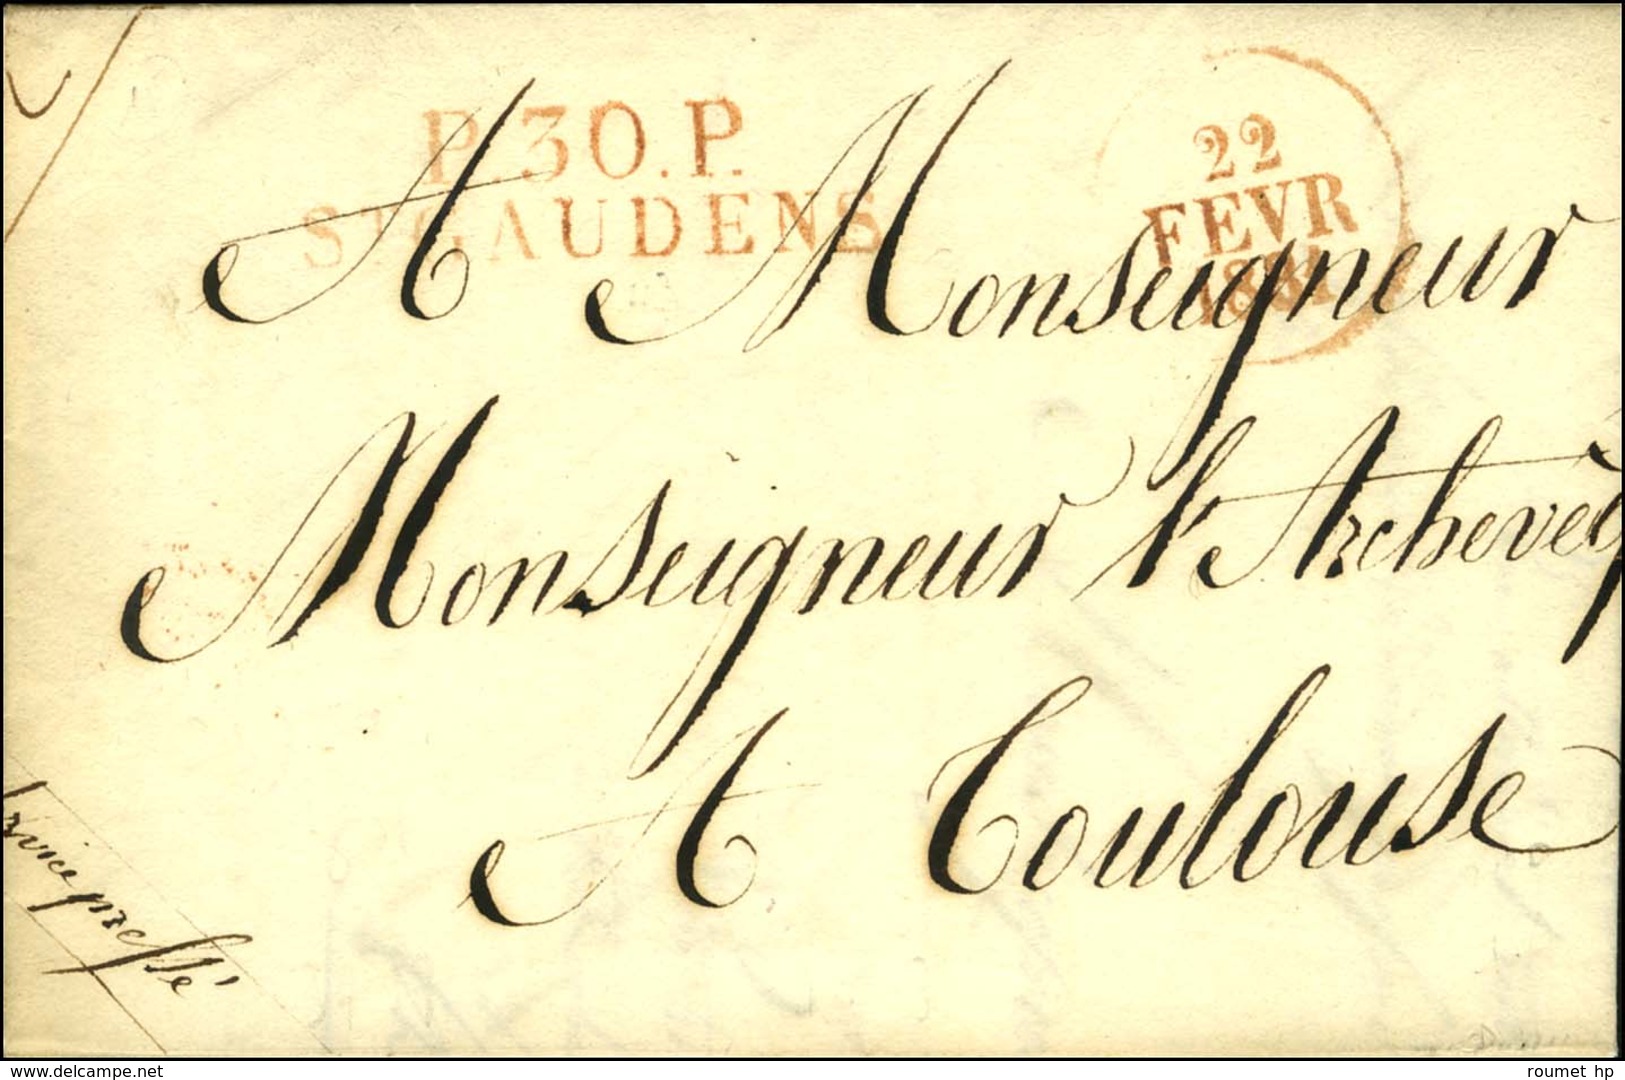 P.30.P.
ST GAUDENS
22
FEVR
A Monseigneur
Monseigneur l'Archevêq
A Toulouse
rvice pressé
www.delcampe.net
roumet hp